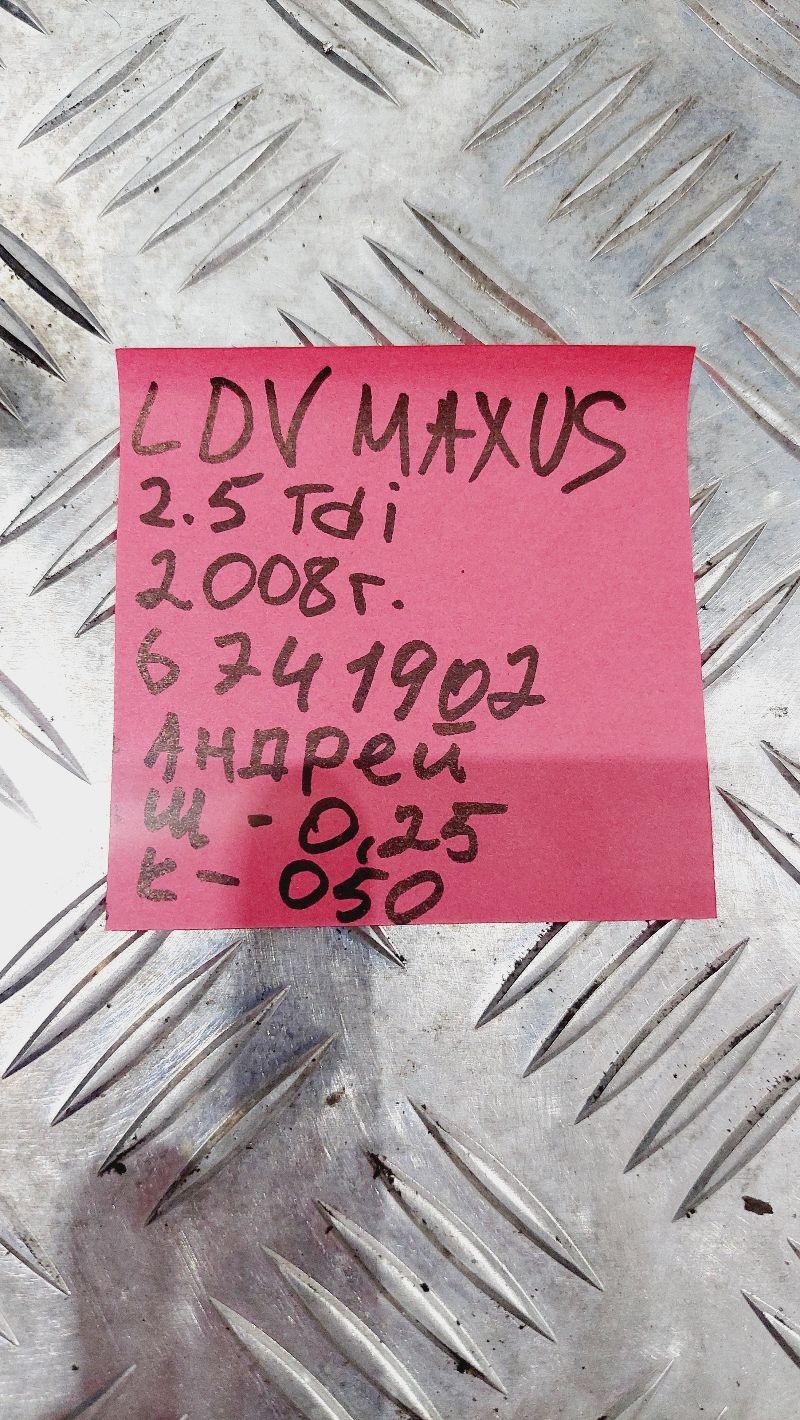 LDV MAXUS
2.5 Tdi
2008г.
6 741902
Андрей
Щ - 0,25
К - 050